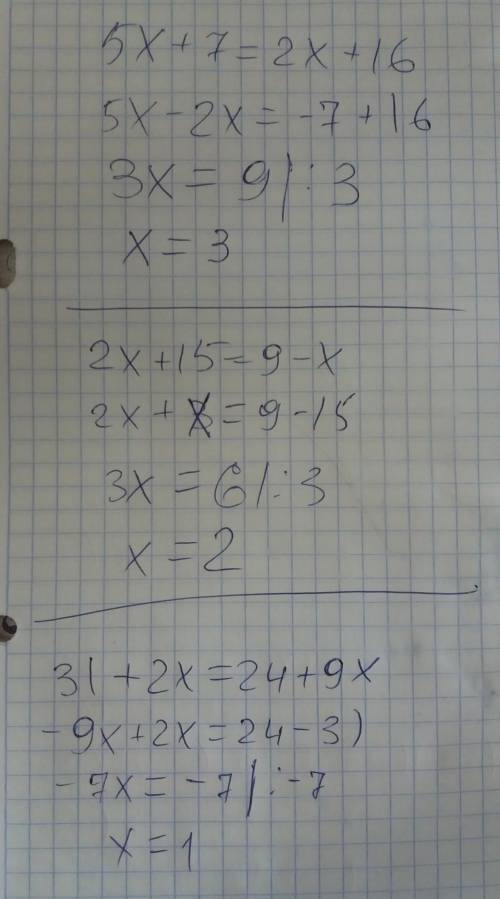 5x+7=2x+16
5x-2x=-7+16
3x=9|:3
x=3
2x+15=9-x
2x+x=9-15
3x=6|:3
x=2
31+2x=24+9x
-9x+2x=24-31
-7x=-7|:-7
x=1